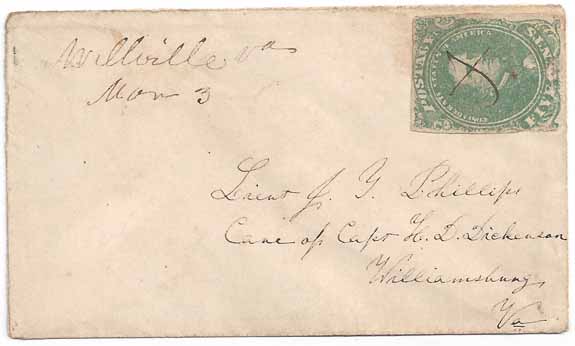 Willville Va
Mar 3
POSTAGE
FIVE CENTS
Lieut J. Y. Phillips
Care of Capt H. D. Dickenson
Williamsburg,
Va